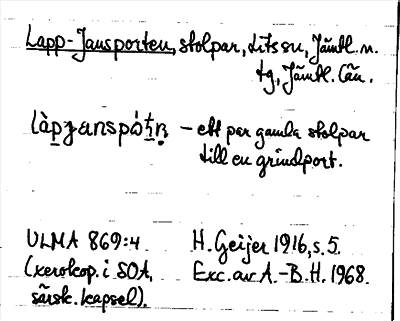 Lapp-Jansporten, stolpar, tits su, Jämtl. n.
tg, Jämtl. län.
làpjanspòtn̥ – ett par gamla stolpar
till en grindport.
ULMA 869:4 H. Geijer 1916, s. 5.
(xerokop. i SOA, Exc. av A.-B.H. 1968.
särsk. kapsel).